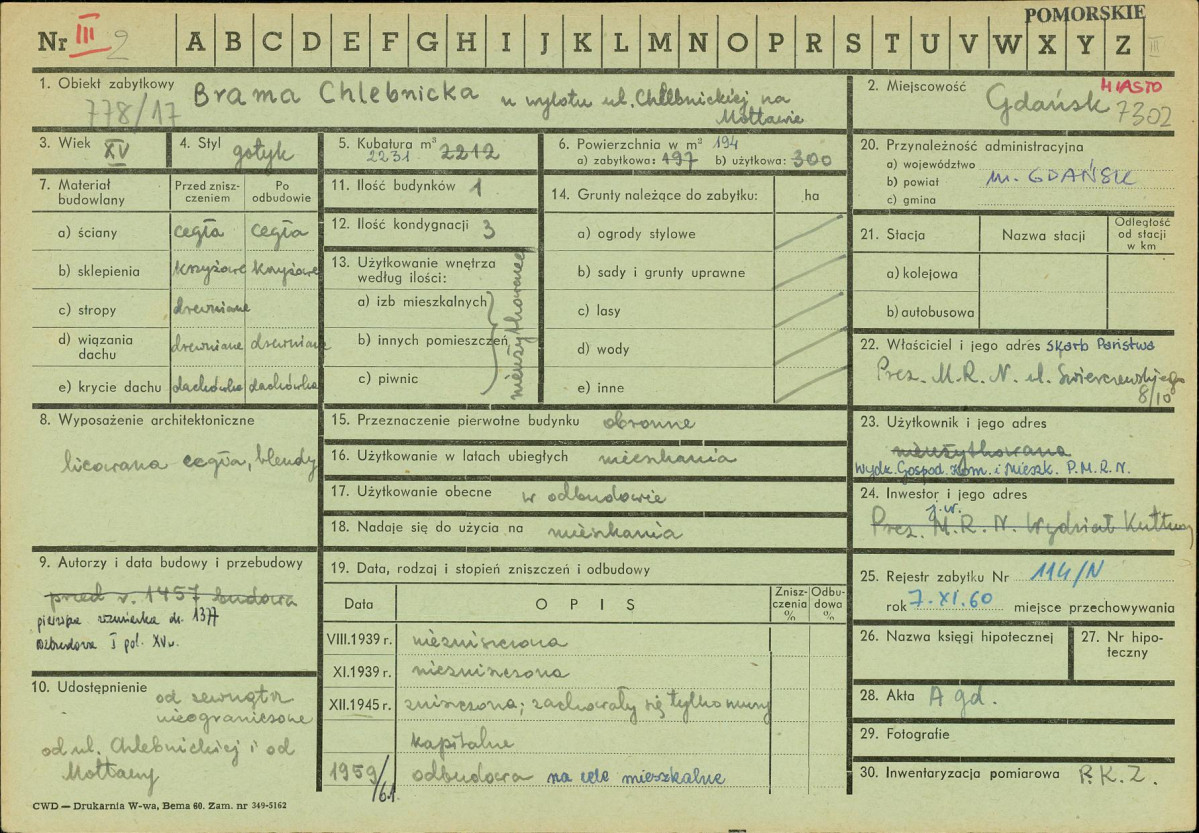 POMORSKIE
Nr III 2 A B C D E F G H I J K L M N O P R S T U V W X Y Z III
1. Obiekt zabytkowy Brama Chlebnicka u wylotu ul. Chlebnickiej na Mołtawie
778/17
2. Miejscowość Gdańsk MIASTO
7302
3. Wiek XV
4. Styl gotyk
5. Kubatura m³ 2212
2231
6. Powierzchnia w m² 194
a) zabytkowa: 197 b) użytkowa: 300
20. Przynależność administracyjna
a) województwo
b) powiat m. GDAŃSK
c) gmina
7. Materiał budowlany
Przed zniszczeniem
Po odbudowie
a) ściany cegła cegła
b) sklepienia krzyżowe krzyżowe
c) stropy drewniane
d) wiązania dachu drewniane drewniane
e) krycie dachu dachówka dachówka
11. Ilość budynków 1
12. Ilość kondygnacji 3
13. Użytkowanie wnętrza według ilości:
a) izb mieszkalnych
b) innych pomieszczeń
c) piwnic
nieużytkowane
14. Grunty należące do zabytku: ha
a) ogrody stylowe
b) sady i grunty uprawne
c) lasy
d) wody
e) inne
21. Stacja Nazwa stacji Odległość od stacji w km
a) kolejowa
b) autobusowa
22. Właściciel i jego adres Skarb Państwa
Prez. M.R.N. ul. Świerczewskiego
8/10
8. Wyposażenie architektoniczne
licowana cegła, blendy
15. Przeznaczenie pierwotne budynku obronne
16. Użytkowanie w latach ubiegłych mieszkania
17. Użytkowanie obecne w odbudowie
18. Nadaje się do użycia na mieszkania
23. Użytkownik i jego adres
nieużytkowana
Wydz. Gospod. Kom. i Mieszk. P.M.R.N.
24. Inwestor i jego adres
j.w.
Prez. M.R.N. Wydział Kultury
9. Autorzy i data budowy i przebudowy
przed r. 1457 budowa
pierwsza wzmianka dr. 1377
rozbudowa I poł. XVw.
10. Udostępnienie od zewnątrz
nieograniczone
od ul. Chlebnickiej i od
Mołtawy
19. Data, rodzaj i stopień zniszczeń i odbudowy
Data OPIS Zniszczenia % Odbudowa %
VIII.1939 r. niezniszczona
XI.1939 r. niezniszczona
XII.1945 r. zniszczona; zachowały się tylko mury
kapitalne
1959/61 odbudowa na cele mieszkalne
25. Rejestr zabytku Nr 114/N
rok 7.XI.60 miejsce przechowywania
26. Nazwa księgi hipotecznej
27. Nr hipoteczny
28. Akta A gd.
29. Fotografie
30. Inwentaryzacja pomiarowa P.K.Z.
CWD — Drukarnia W-wa, Bema 60. Zam. nr 349-5162